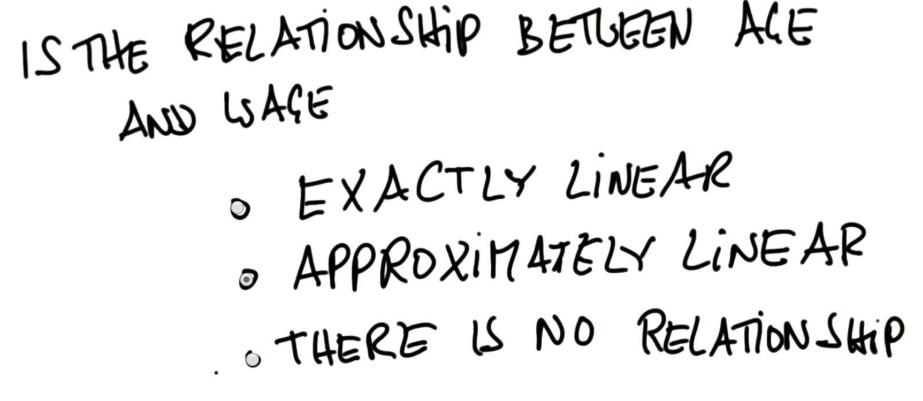 IS THE RELATIONSHIP BETWEEN AGE
AND WAGE
EXACTLY LINEAR
APPROXIMATELY LINEAR
THERE IS NO RELATIONSHIP